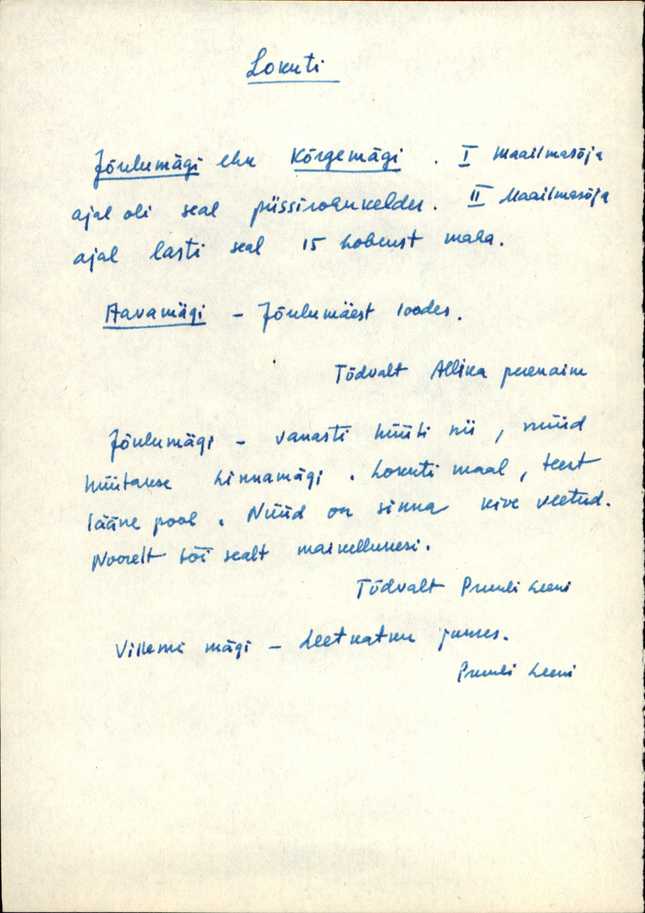 Lokuti
Jõulumägi ehk Kõrgemägi. I Maailmasõja
ajal oli seal püssirohukelder. II Maailmasõja
ajal lasti seal 15 hobust maha.
Aavamägi - Jõulumäest loodes.
Tõdvalt Allika perenaine
Jõulumägi - vanasti hüüti nii, nüüd
hüütakse Linnamägi. Lokuti maal, teest
lääne pool. Nüüd on sinna kive veetud.
Noorelt sõi sealt maikellukesi.
Tõdvalt Pruuli Leeni
Villemi mägi - Leetkatku juures.
Pruuli Leeni